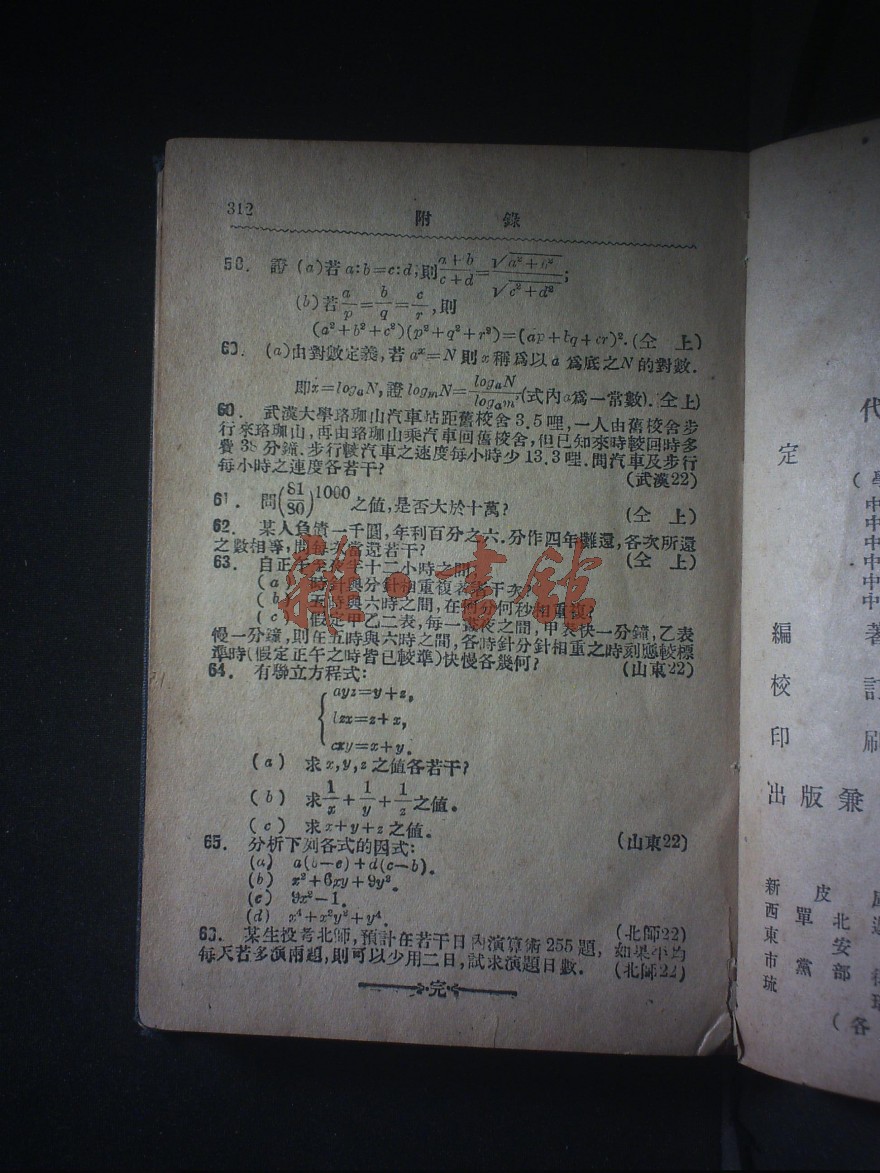 312
附 錄
58. 證 (a)若 a:b=c:d,則 (a+b)/(c+d)=√(a²+b²)/√(c²+d²);
(b)若 a/p=b/q=c/r,則
(a²+b²+c²)(p²+q²+r²)=(ap+bq+cr)².(仝 上)
(a)由對數定義,若 aˣ=N 則 x 稱爲以 a 爲底之N 的對數.
即x=logₐN,證 logₘN=logₐN/logₐm,(式內a爲一常數).(仝上)
60. 武漢大學珞珈山汽車站距舊校舍 3.5哩,一人由舊校舍步
行來珞珈山,再由珞珈山乘汽車回舊校舍,但已知來時較回時多
費 38 分鐘.步行較汽車之速度每小時少 13.3哩.問汽車及步行
每小時之速度各若干? (武漢22)
61. 問(81/80)¹⁰⁰⁰ 之値,是否大於十萬? (仝 上)
62. 某人負債一千圓,年利百分之六.分作四年攤還,各次所還
之數相等,問每次當還若干? (仝 上)
63. 自正午 十二小時之間
(a) 時針與分針相重複者若干次?
(b) 五時與六時之間,在何分何秒相重複?
(c) 假定甲乙二表,每一晝夜之間,甲表快一分鐘,乙表
慢一分鐘,則在五時與六時之間,各時針分針相重之時刻應較標
準時(假定正午之時皆已較準)快慢各幾何? (山東22)
64. 有聯立方程式:
ayz=y+z,
bzx=z+x,
cxy=x+y.
(a) 求 x,y,z 之値各若干?
(b) 求 1/x+1/y+1/z 之値。
(c) 求 x+y+z 之値。 (山東22)
65. 分析下列各式的因式:
(a) a(b-c)+d(c-b).
(b) x²+6xy+9y².
(c) 9x²-1.
(d) x⁴+x²y²+y⁴. (北師22)
某生投考北師,預計在若干日內演算術 255 題, 如果平均
每天若多演兩題,則可以少用二日,試求演題日數. (北師22)
完
雜 書館
代
定
編 著
校 訂
印 刷
出 版 兼
新西東市琉
皮單黨
北安部
(各